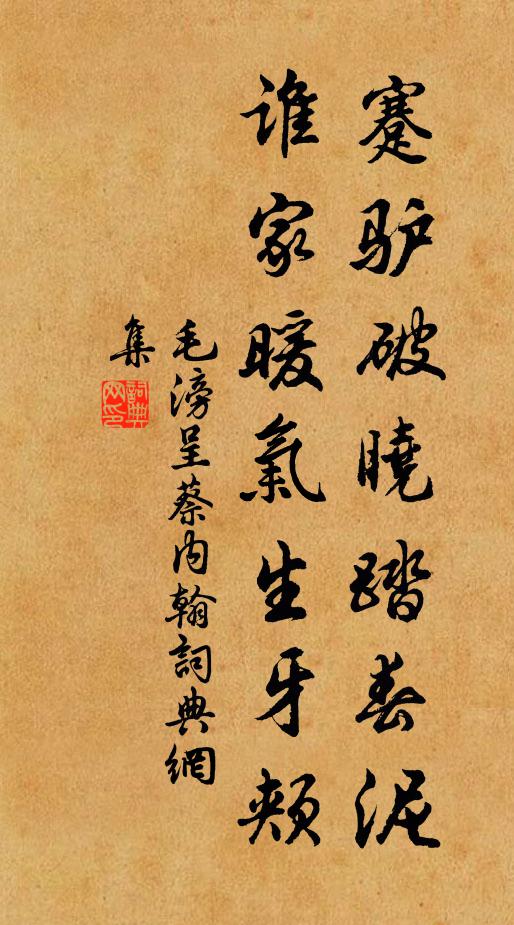 蹇驴破曉踏春泥
谁家暖氣生牙頰
毛滂呈蔡内翰詞典網
集
詞典
网印